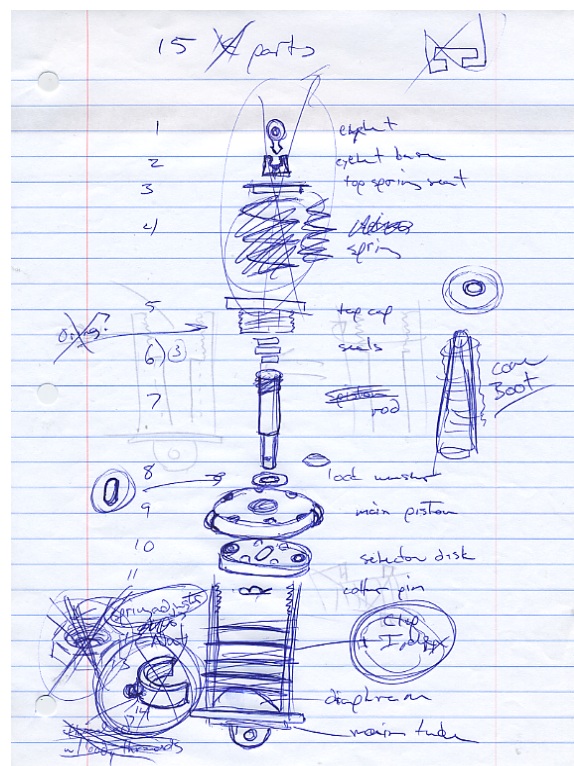 15 parts
1 eyelet
2 eyelet base
3 top spring seat
4 spring
5 top cap
O-ring?
6) (3) seals
7 rod
cone
Boot
8 lock washer
9 main piston
10 selector disk
11 cotter pin
13
14
diaphragm
main tube
w/ body threads